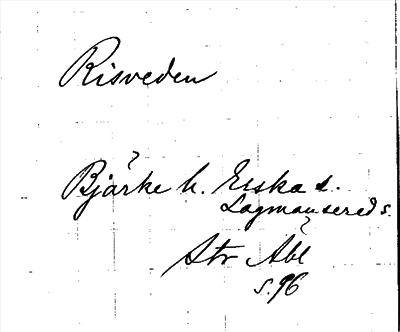 Risveden
?
Bjärke h. Erska s.
Lagmansereds s.
?
Str Äbl
s. 96